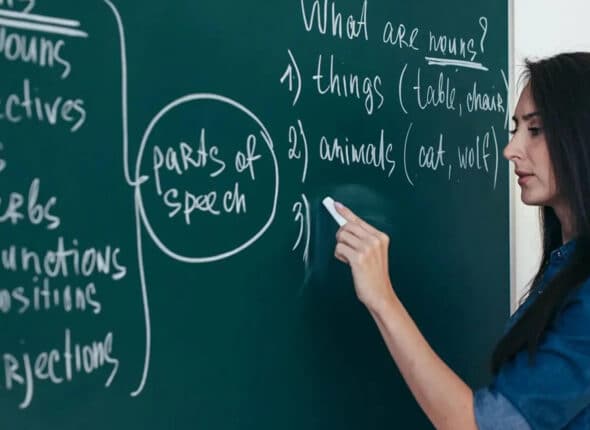 ouns
ctives
s
erbs
unctions
ositions
rjections
parts of
speech
What are nouns?
1) things (table, chair)
2) animals (cat, wolf)
3)